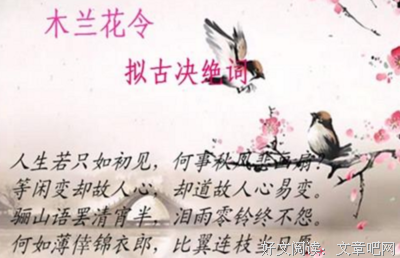 木兰花令
拟古决绝词
人生若只如初见，何事秋风悲画扇？
等闲变却故人心，却道故人心易变。
骊山语罢清宵半，泪雨零铃终不怨。
何如薄倖锦衣郎，比翼连枝当日愿。
好文阅读：文章吧网